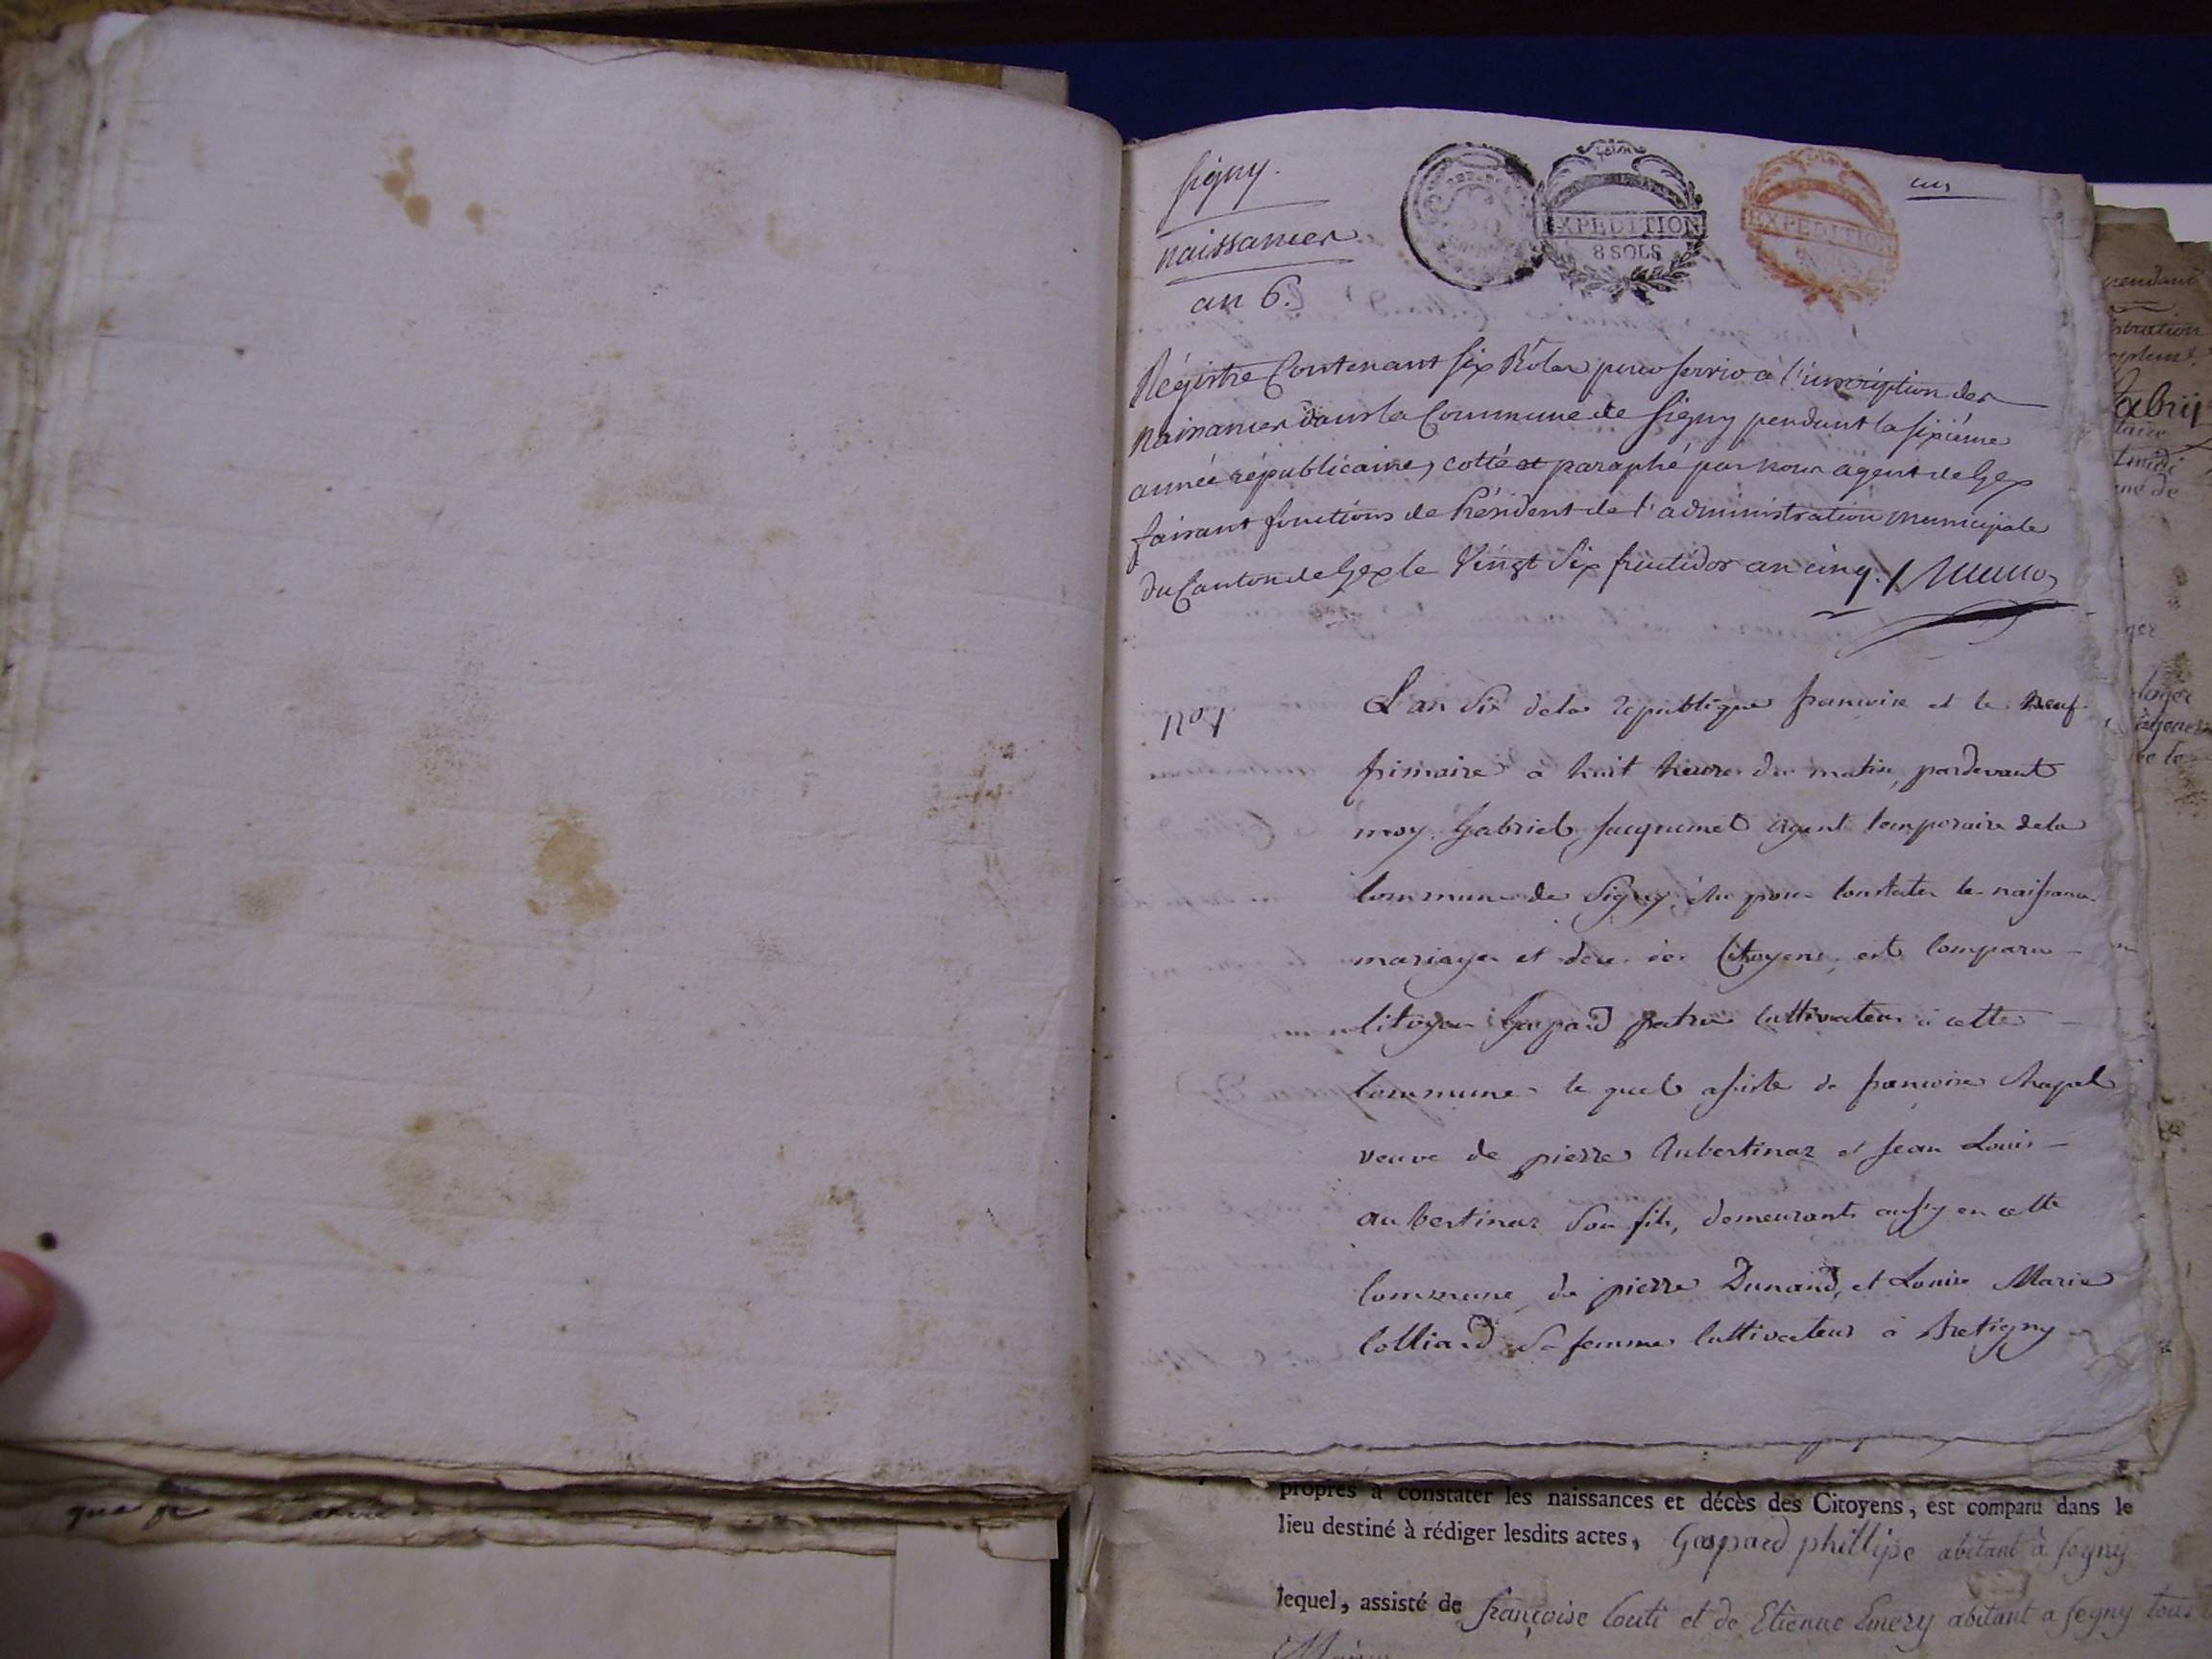 Segny.
naissances
an 6.
EXPEDITION
8 SOLS
EXPEDITION
un
Régistre Contenant six Rôles pour servir à l'inscription des
naissances dans la Commune de Segny pendant la sixième
année républicaine, cotté et paraphé par nous agent de Gex
faisant fonctions de Président de l'administration municipale
du Canton de Gex le vingt six fructidor an cinq.
No 1
L'an six de la republique francoise et le neuf
frimaire a huit heures du matin, pardevant
moy Gabriel Jacquemet agent temporaire de la
Commune de Signy élu pour constater les naissances
mariages et des Citoyens, est comparu
Citoyen Gaspard cultivateur à cette
Commune le quel assisté de francoise Chapel
veuve de pierre Aubertinaz et Jean Louis
aubertinaz son fils, demeurants aussy en cette
Commune, de pierre Dunand, et Louise Marie
Colliard Sa femme Cultivateur à Bretigny
pendant
stration
que je
propres à constater les naissances et décès des Citoyens, est comparu dans le
lieu destiné à rédiger lesdits actes, Gaspard phillipe abitant à segny
lequel, assisté de françoise Couti et de Etienne Emery abitant a segny tous